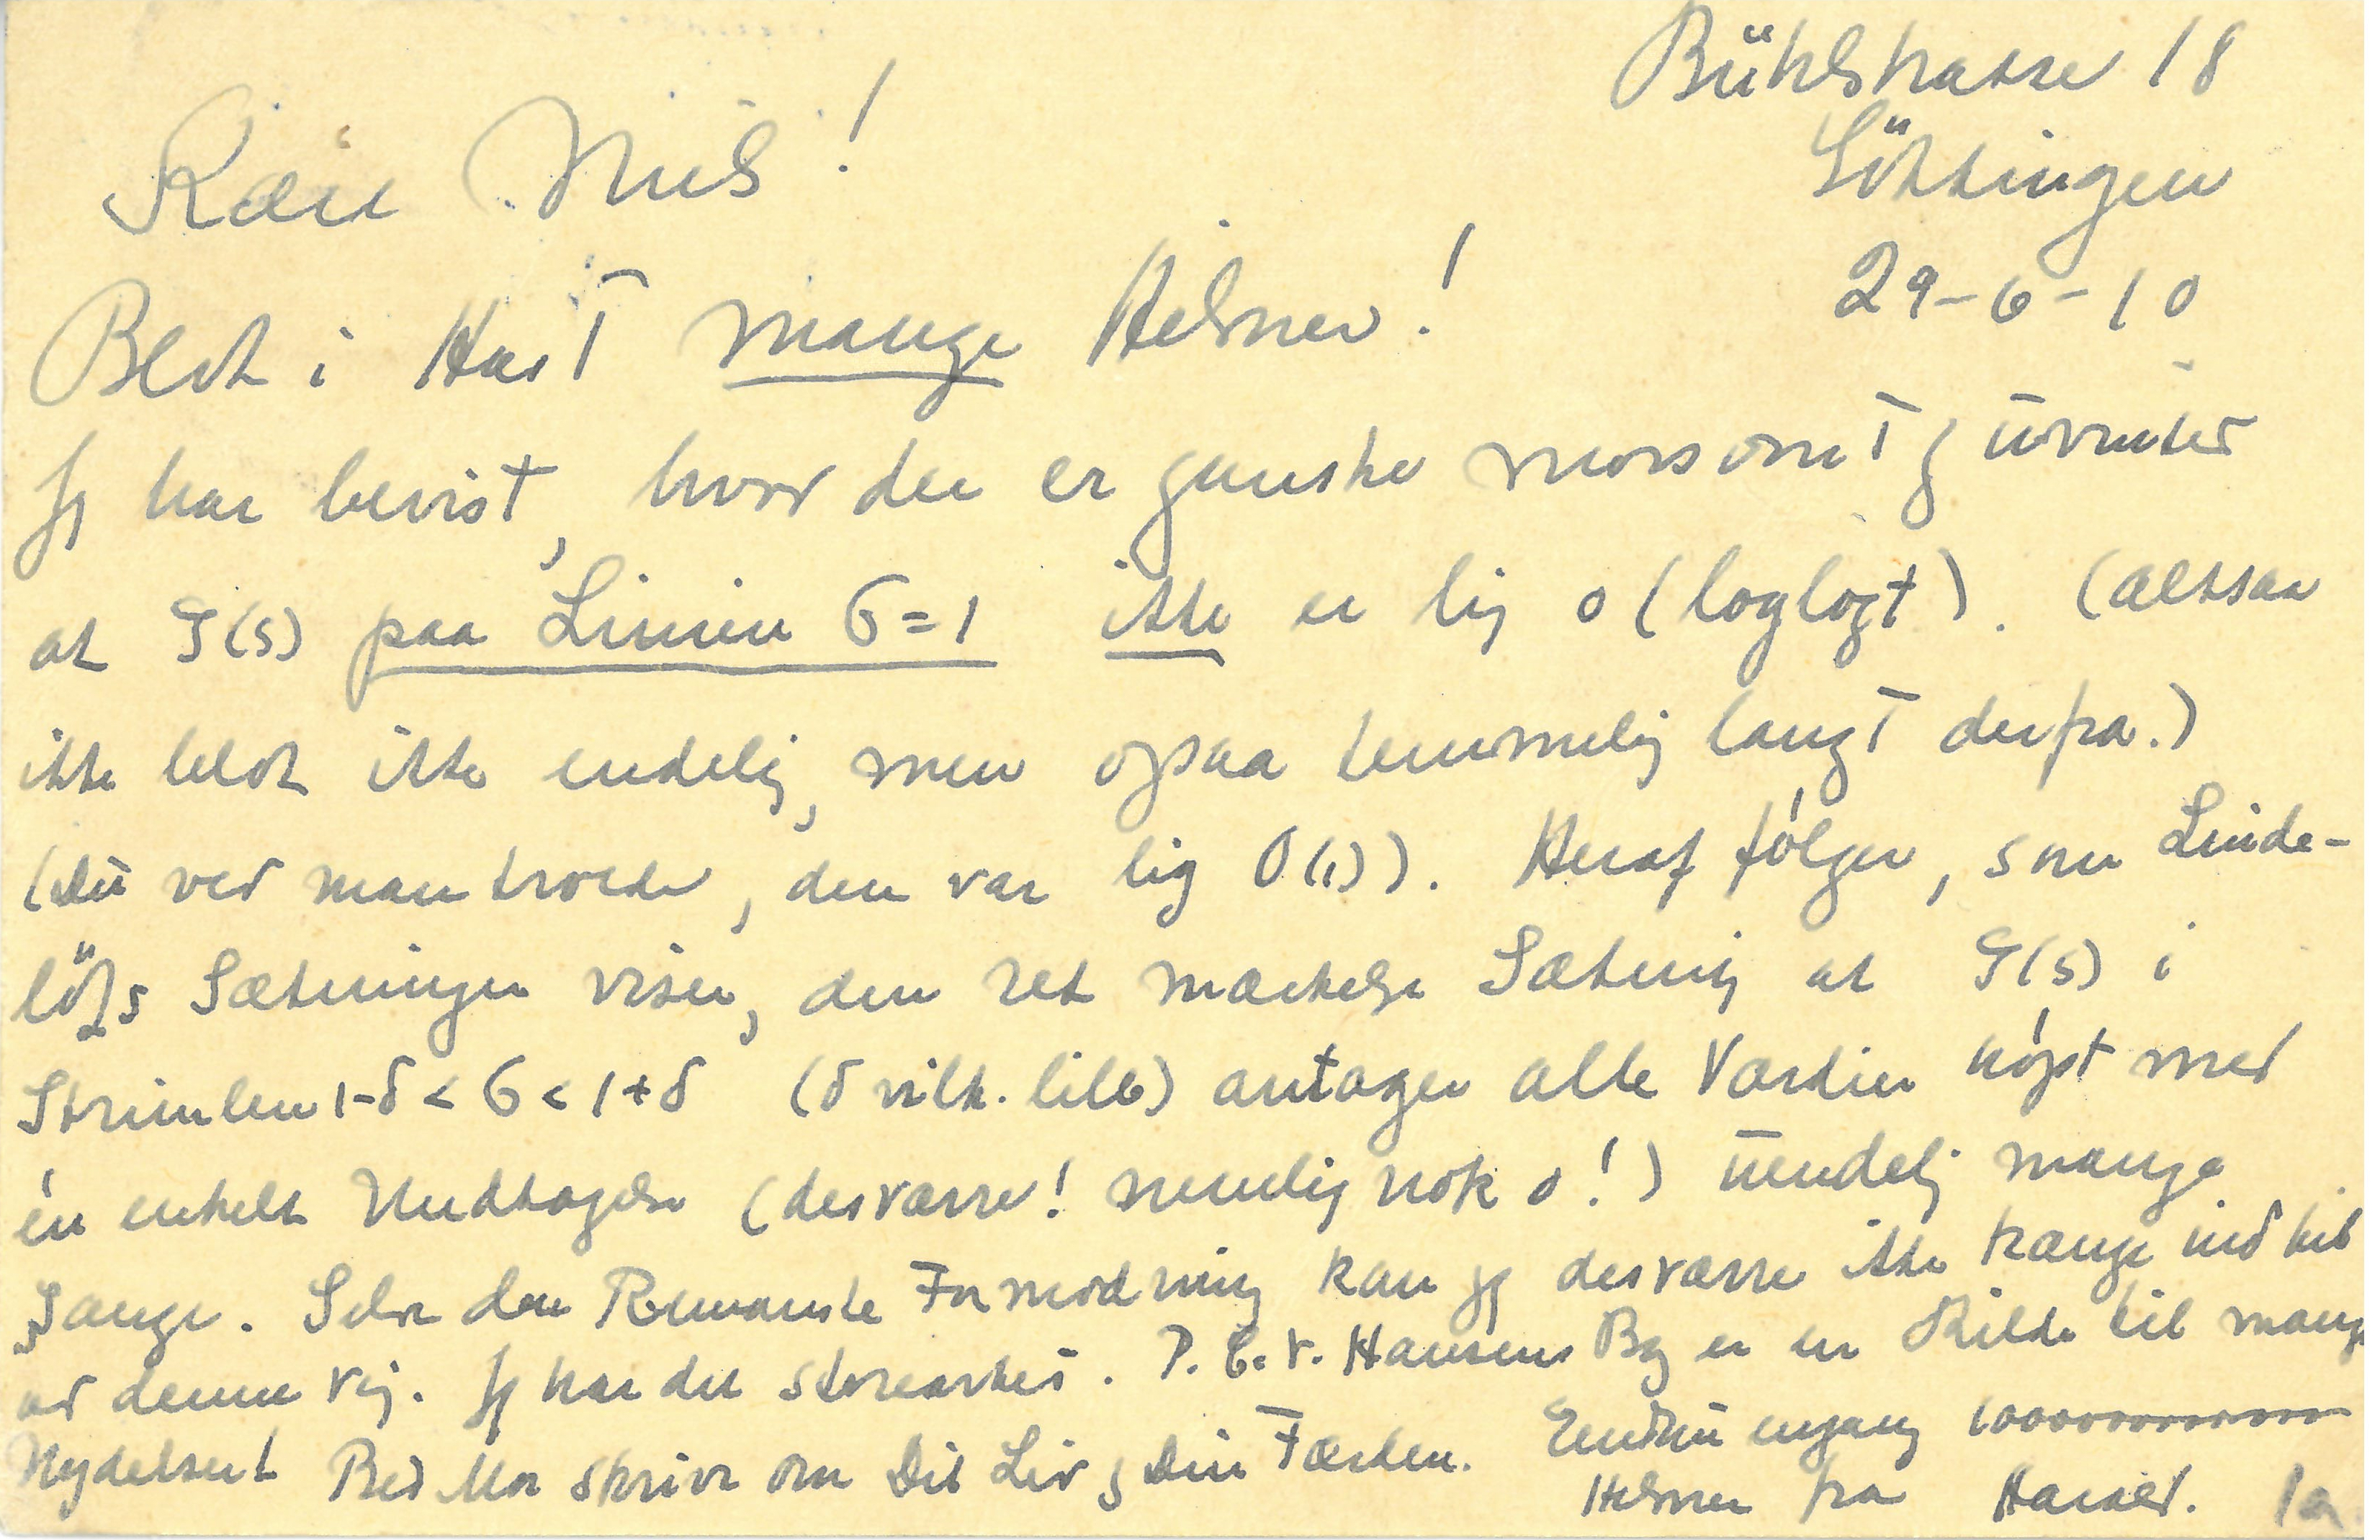 Bühlstrasse 18
Göttingen
29-6-10
Kære Niels!
Blot i Hast mange Hilsner!
Jeg har bevist, hvor der er ganske morsomt og uventet
at ζ(s) paa Linien σ=1 ikke er lig o(loglogt). (altsaa
ikke blot ikke endelig, men ogsaa temmelig langt derfra.)
(Du ved man troede, den var lig O(1)). Heraf følger, som Linde-
löfs Sætninger viser, den ret mærkelige Sætning at ζ(s) i
Strimlen 1-δ<σ<1+δ (δ vilk. lille) antager alle Værdier højst med
én enkelt Undtagelse (desværre! nemlig nok o!) uendelig mange
Gange. Selve den Riemannske Formodning kan jeg desværre ikke trænge ind til
ad denne Vej. Jeg har det storartet. P.C.V. Hansens Bog er en Kilde til mange
Nydelser! Bed Mor skrive om Dit Liv og Din Færden. Endnu engang 1000000000000
Hilsner fra Harald.